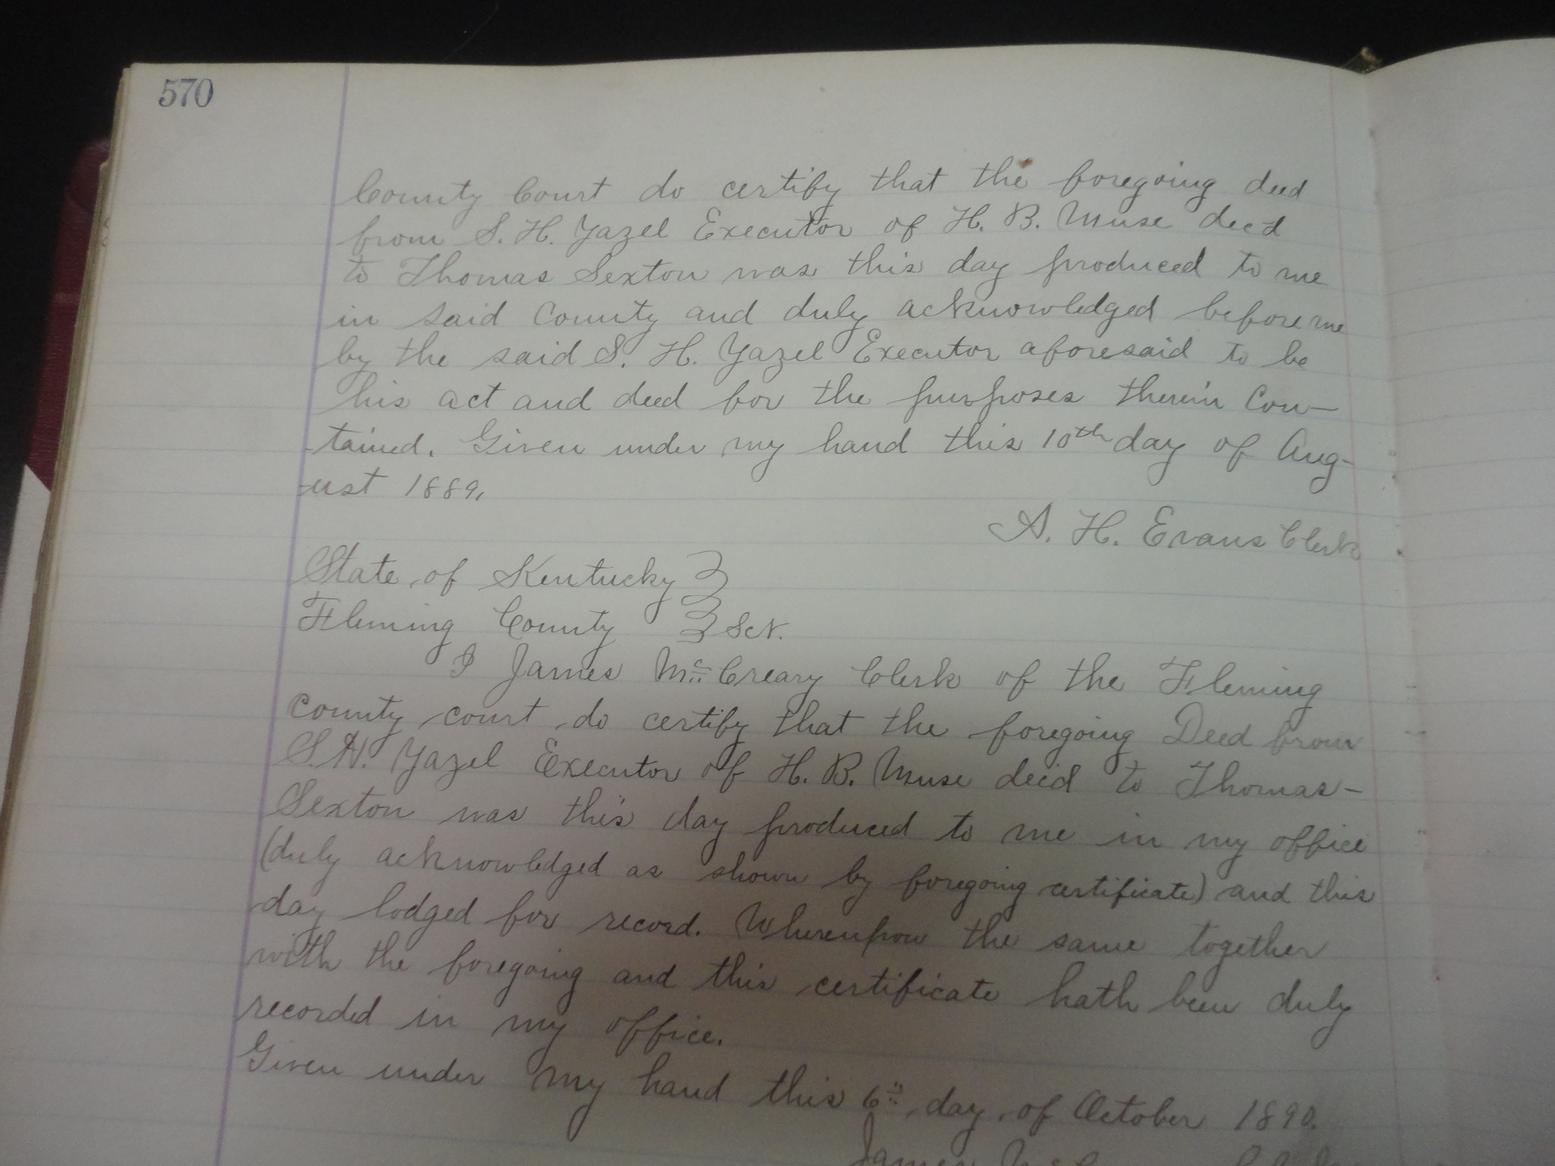 570
County Court do certify that the foregoing deed
from S. H. Yazel Executor of H. B. Muse decd
to Thomas Sexton was this day produced to me
in said County and duly acknowledged before me
by the said S. H. Yazel Executor aforesaid to be
his act and deed for the purposes therein Con-
tained. Given under my hand this 10th day of Aug-
ust 1889,
A. H. Evans Clerk
State of Kentucky }
Fleming County } Sct.
I James McCreary Clerk of the Fleming
County court do certify that the foregoing Deed from
S. H. Yazel Executor of H. B. Muse decd to Thomas-
Sexton was this day produced to me in my office
(duly acknowledged as shown by foregoing certificate) and this
day lodged for record. Whereupon the same together
with the foregoing and this certificate hath been duly
recorded in my office.
Given under my hand this 6th day of October 1890.
James